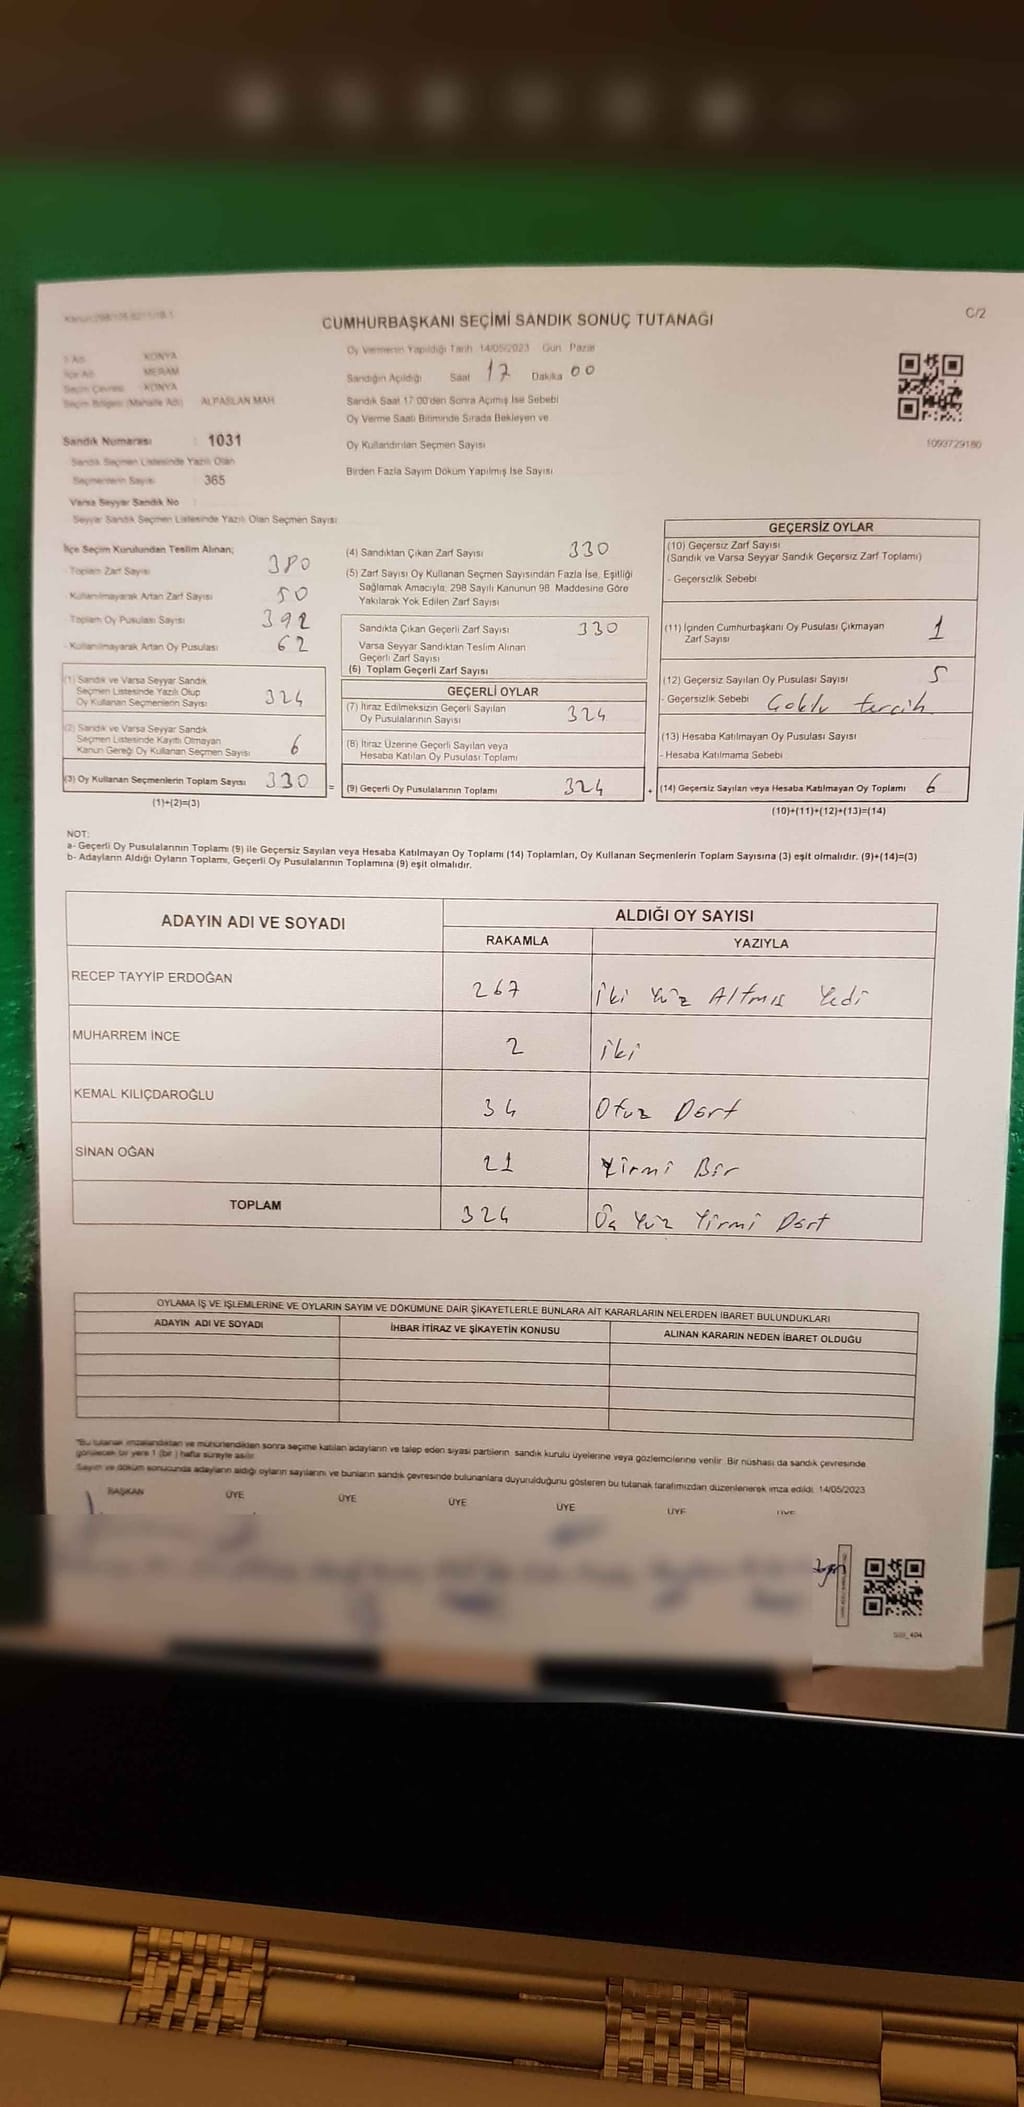 CUMHURBAŞKANI SEÇİMİ SANDIK SONUÇ TUTANAĞI
C/2
KONYA
MERAM
KONYA
Seçim Bölgesi (Mahalle Adı) ALPASLAN MAH
Oy Vermenin Yapıldığı Tarih 14/05/2023 Gün Pazar
Sandığın Açıldığı Saat 17 Dakika 00
Sandık Saat 17:00'den Sonra Açımış İse Sebebi
Oy Verme Saati Bitiminde Sırada Bekleyen ve
Oy Kullandırılan Seçmen Sayısı
Birden Fazla Sayım Döküm Yapılmış İse Sayısı
1093729180
Sandık Numarası : 1031
Sandık Seçmen Listesinde Yazılı Olan
Seçmenlerin Sayısı 365
Varsa Seyyar Sandık No
Seyyar Sandık Seçmen Listesinde Yazılı Olan Seçmen Sayısı
İlçe Seçim Kurulundan Teslim Alınan;
- Toplam Zarf Sayısı 380
- Kullanılmayarak Artan Zarf Sayısı 50
- Toplam Oy Pusulası Sayısı 392
- Kullanılmayarak Artan Oy Pusulası 62
(1) Sandık ve Varsa Seyyar Sandık
Seçmen Listesinde Yazılı Olup
Oy Kullanan Seçmenlerin Sayısı 324
(2) Sandık ve Varsa Seyyar Sandık
Seçmen Listesinde Kayıtlı Olmayan
Kanun Gereği Oy Kullanan Seçmen Sayısı 6
(3) Oy Kullanan Seçmenlerin Toplam Sayısı 330
(1)+(2)=(3)
(4) Sandıktan Çıkan Zarf Sayısı 330
(5) Zarf Sayısı Oy Kullanan Seçmen Sayısından Fazla İse, Eşitliği
Sağlamak Amacıyla, 298 Sayılı Kanunun 98. Maddesine Göre
Yakılarak Yok Edilen Zarf Sayısı
Sandıkta Çıkan Geçerli Zarf Sayısı 330
Varsa Seyyar Sandıktan Teslim Alınan
Geçerli Zarf Sayısı
(6) Toplam Geçerli Zarf Sayısı
GEÇERLİ OYLAR
(7) İtiraz Edilmeksizin Geçerli Sayılan
Oy Pusulalarının Sayısı 324
(8) İtiraz Üzerine Geçerli Sayılan veya
Hesaba Katılan Oy Pusulası Toplamı
= (9) Geçerli Oy Pusulalarının Toplamı 324
GEÇERSİZ OYLAR
(10) Geçersiz Zarf Sayısı
(Sandık ve Varsa Seyyar Sandık Geçersiz Zarf Toplamı)
- Geçersizlik Sebebi
(11) İçinden Cumhurbaşkanı Oy Pusulası Çıkmayan
Zarf Sayısı 1
(12) Geçersiz Sayılan Oy Pusulası Sayısı 5
- Geçersizlik Sebebi Çoklu tercih
(13) Hesaba Katılmayan Oy Pusulası Sayısı
- Hesaba Katılmama Sebebi
+ (14) Geçersiz Sayılan veya Hesaba Katılmayan Oy Toplamı 6
(10)+(11)+(12)+(13)=(14)
NOT:
a- Geçerli Oy Pusulalarının Toplamı (9) ile Geçersiz Sayılan veya Hesaba Katılmayan Oy Toplamı (14) Toplamları, Oy Kullanan Seçmenlerin Toplam Sayısına (3) eşit olmalıdır. (9)+(14)=(3)
b- Adayların Aldığı Oyların Toplamı, Geçerli Oy Pusulalarının Toplamına (9) eşit olmalıdır.
ADAYIN ADI VE SOYADI
ALDIĞI OY SAYISI
RAKAMLA YAZIYLA
RECEP TAYYİP ERDOĞAN 267 İki Yüz Altmış Yedi
MUHARREM İNCE 2 iki
KEMAL KILIÇDAROĞLU 34 Otuz Dört
SİNAN OĞAN 21 Yirmi Bir
TOPLAM 324 Üç Yüz Yirmi Dört
OYLAMA İŞ VE İŞLEMLERİNE VE OYLARIN SAYIM VE DÖKÜMÜNE DAİR ŞİKAYETLERLE BUNLARA AİT KARARLARIN NELERDEN İBARET BULUNDUKLARI
ADAYIN ADI VE SOYADI İHBAR İTİRAZ VE ŞİKAYETİN KONUSU ALINAN KARARIN NEDEN İBARET OLDUĞU
"Bu tutanak imzalandıktan ve mühürlendikten sonra seçime katılan adayların ve talep eden siyasi partilerin sandık kurulu üyelerine veya gözlemcilerine verilir. Bir nüshası da sandık çevresinde
görülecek bir yere 1 (bir ) hafta süreyle asılır.
Sayım ve döküm sonucunda adayların aldığı oyların sayılarını ve bunların sandık çevresinde bulunanlara duyurulduğunu gösteren bu tutanak tarafımızdan düzenlenerek imza edildi. 14/05/2023
BAŞKAN ÜYE ÜYE ÜYE ÜYE ÜYE ÜYE